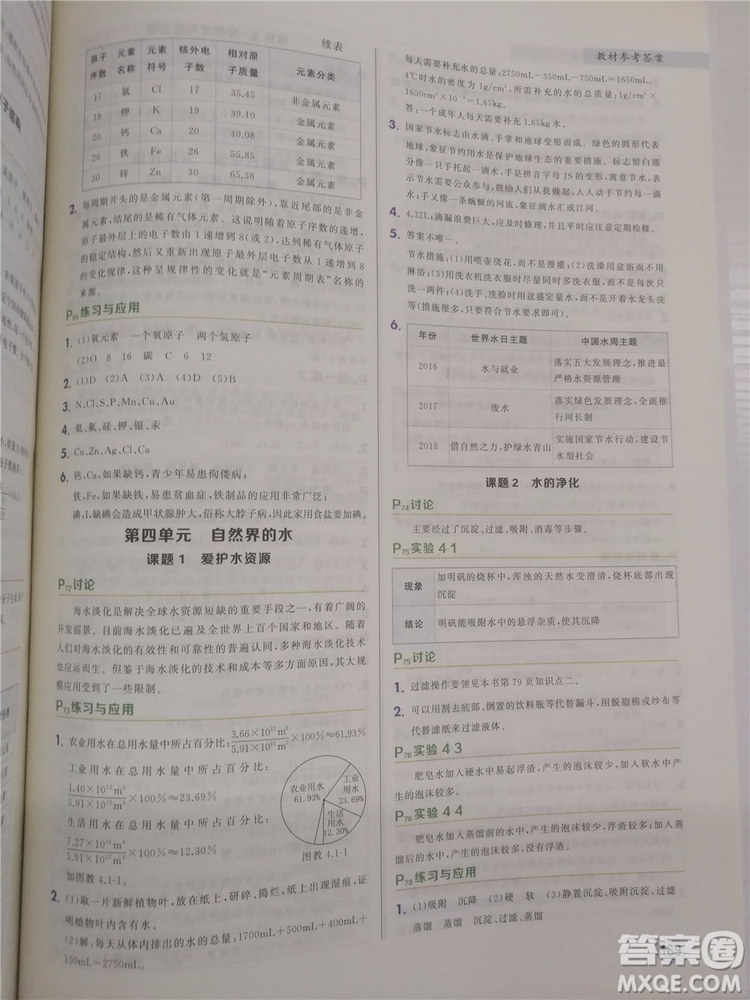 续表
原子序数 元素名称 元素符号 核外电子数 相对原子质量 元素分类
17 氯 Cl 17 35.45 非金属元素
19 钾 K 19 39.10 金属元素
20 钙 Ca 20 40.08 金属元素
26 铁 Fe 26 55.85 金属元素
30 锌 Zn 30 65.38 金属元素
2. 每周期开头的是金属元素(第一周期除外),靠近尾部的是非金
属元素,结尾的是稀有气体元素。每周期随着原子序数的递增,
原子最外层上的电子数由 1 递增到 8(或 2),这样到了下一周
期,又重新出现原子最外层电子数由 1 递增到 8
的变化规律,这种呈规律性的变化就是“元素周期表”名称的
来源。
P65练习与应用
1. (1)氧元素 一个氧原子 两个氢原子
(2)O 8 16 碳 C 6 12
2. (1)D (2)A (3)D (4)A
3. N、Cl、S、P、Mn、Cu、Au
4. 氦、氟、硅、钾、银、汞
5. Cu、Zn、Ag、Cl、Ca
6. 钙,Ca,如果缺钙,青少年易患佝偻病;
铁,Fe,如果缺铁,易患贫血症,铁制品的应用非常广泛;
碘,I,缺碘会造成甲状腺肿大,俗称大脖子病,因此家用食盐要加碘。
第四单元 自然界的水
课题1 爱护水资源
P72讨论
海水淡化是解决全球水资源短缺的重要手段之一,有着广阔的
开发前景。目前海水淡化已遍及全世界上百个国家和地区。人
们对海水淡化技术的有效性和可靠性的普遍认同,使许多海水淡化技术
也应运而生。但鉴于海水淡化的技术和成本等多方面原因,其大规模
应用受到了一些限制。
P73练习与应用
1. 农业用水在总用水量中所占百分比:3.66×10¹²m³/5.91×10¹²m³×100%≈61.93%
工业用水在总用水量中所占百分比:
1.40×10¹²m³/5.91×10¹²m³×100%≈23.69%
生活用水在总用水量中所占百分比:
7.27×10¹¹m³/5.91×10¹²m³×100%≈12.30%
如图教 4.1-1。
农业用水 61.93%
工业用水 23.69%
生活用水 12.30%
图教 4.1-1
2. (1)取一片新鲜植物叶,研碎、捣烂,纸上出现湿痕,证
明植物叶中含有水。
(2)解:每天从体内排出的水的总量:1700mL+500mL+400mL+
150mL=2750mL。
教材参考答案
每天需要补充水的总量:2750mL-350mL-750mL=1650mL。
4℃时水的密度为 1g/cm³,每天需要补充水的质量为 1g/cm³×
1650cm³×10⁻³=1.65kg。
答:一个成年人每天需要补充 1.65kg 水。
3. 国家节水标志由水滴、手掌和地球变形而成。绿色的圆形代表
地球,象征节约用水是保护地球生态的重要措施。标志留白部分
像一只手托起一滴水,手是拼音字母 JS 的变形,寓意节水,表
示节水需要公众参与,鼓励人们从我做起,人人动手节约每一滴
水;手又像一条蜿蜒的河流,象征滴水汇成江河。
4. 4.32L;滴漏浪费巨大,应及时修理,并大力提倡节约用水。
5. 答案不唯一。
节水措施:(1)用喷壶浇花,而不是漫灌;(2)洗澡用盆浴而不用
淋浴;(3)用洗衣机洗衣服时尽量增大每次洗衣服的量,而不是
洗一两件;(4)洗手、洗脸时用盆盛定量水,而不用开着水龙头洗
等(措施很多,只要符合节水要求即可)。
6.
年份 世界水日主题 中国水周主题
2016 水与就业 落实五大发展理念,推进最严格水资源管理
2017 废水 落实绿色发展理念,全面推行河长制
2018 借自然之力,护绿水青山 实施国家节水行动,建设节水型社会
课题2 水的净化
P74讨论
主要经过了沉淀、过滤、吸附、消毒等步骤。
P75实验 4 1
现象 加明矾的烧杯中,浑浊的天然水变澄清,烧杯底部出现沉淀
结论 明矾能吸附水中的悬浮杂质,使其沉降
P75讨论
1. 过滤操作要领见本书第 79 页知识点二。
2. 可以用割去底部、倒置的饮料瓶等代替漏斗,用脱脂棉或纱布等
代替滤纸来过滤液体。
P76实验 4 3
肥皂水加入硬水中易起浮渣,产生的泡沫较少,加入软水中产
生的泡沫较多。
P76实验 4 4
肥皂水加入蒸馏前的水中,产生的泡沫较少,浮渣较多;加入蒸
馏后的水中,产生的泡沫较多,没有浮渣。
P78练习与应用
1. (1)吸附 沉降 (2)硬 软 (3)静置沉淀、吸附沉淀、过滤、
蒸馏 蒸馏 沉淀、过滤、蒸馏
答案圈
MXQE.COM